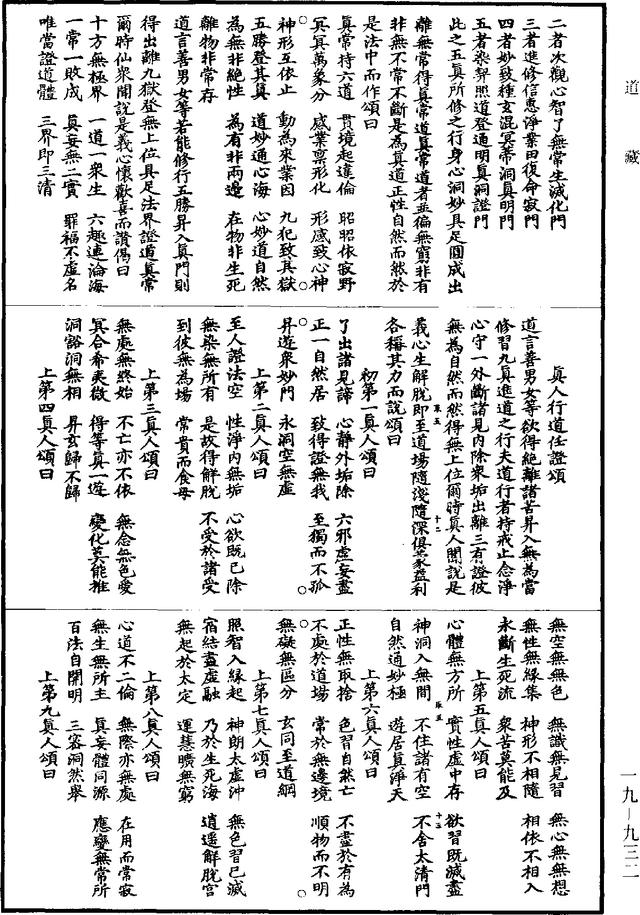 道藏
二者次觀心智了無常生滅化門
三者進修信惠淨業田復命寂門
四者妙致種玄混冥蒂洞真明門
五者染契照道登通明真洞證門
此之五真所修之行身心洞妙具足圓成出
離無常得真常道真常道者並徧無窮非有
非無不常不斷是為真道正性自然而然於
是法中而作頌曰
真常持六道 貫境起違倫 昭昭依寂野
冥冥萬象分 感業稟形化 形感致心神
神形互依止 動為來業因 九犯致其獄
五勝登其真 道妙通心海 心妙道自然
為無非絕性 為有非兩邊 在物非生死
離物非常存
道言善男女等若能修行五勝昇入真門則
得出離九獄登無上位具足法界證道真常
爾時仙眾聞說是義心懷歡喜而讚偈曰
十方無極界 一道一眾生 六趣連淪海
一常一敗成 真妄無二實 罪福不虛名
唯當證道體 三界即三清
真人行道任證頌
道言善男女等欲得絕離諸苦昇入無為當
修習九真進道之行夫道行者持戒止念淨
心守一外斷諸見內除眾垢出離三有證彼
無為自然而然得無上位爾時真人聞說是
義心生解脫即至道場隨淺隨深俱蒙益利
各稱其力而說頌曰
初第一真人頌曰
了出諸見諦 心靜外垢除 六邪虛妄盡
正一自然居 致得證無我 至獨而不孤
昇遊眾妙門 永洞空無虛
上第二真人頌曰
至人證法空 性淨內無垢 心欲既已除
無染無所有 是故得解脫 不受於諸受
到彼無為場 常貴而食母
上第三真人頌曰
無處無終始 不亡亦不依 無念無色愛
冥合希夷微 得等真一遊 變化莫能推
洞豁洞無相 昇玄歸不歸
上第四真人頌曰
無空無無色 無識無見習 無心無無想
無性無緣集 神形不相隨 相依不相入
永斷生死流 眾苦莫能及
上第五真人頌曰
心體無方所 實性虛中存 欲習既滅盡
神洞入無間 不住諸有空 不舍太清門
自然通妙極 遊居真淨天
上第六真人頌曰
正性無取捨 色習自然亡 不盡於有為
不處於道場 常於無邊境 順物而不明
無礙無區分 玄同至道綱
上第七真人頌曰
照智入緣起 神朗太虛沖 無色習已滅
宿結盡虛融 乃於生死海 逍遙解脫宮
無起於太定 運慧曠無窮
上第八真人頌曰
心道不二倫 無際亦無處 在用而常寂
無生無所主 真妄體同源 應變無常所
百法自開明 三容洞然舉
上第九真人頌曰
一九—九三二